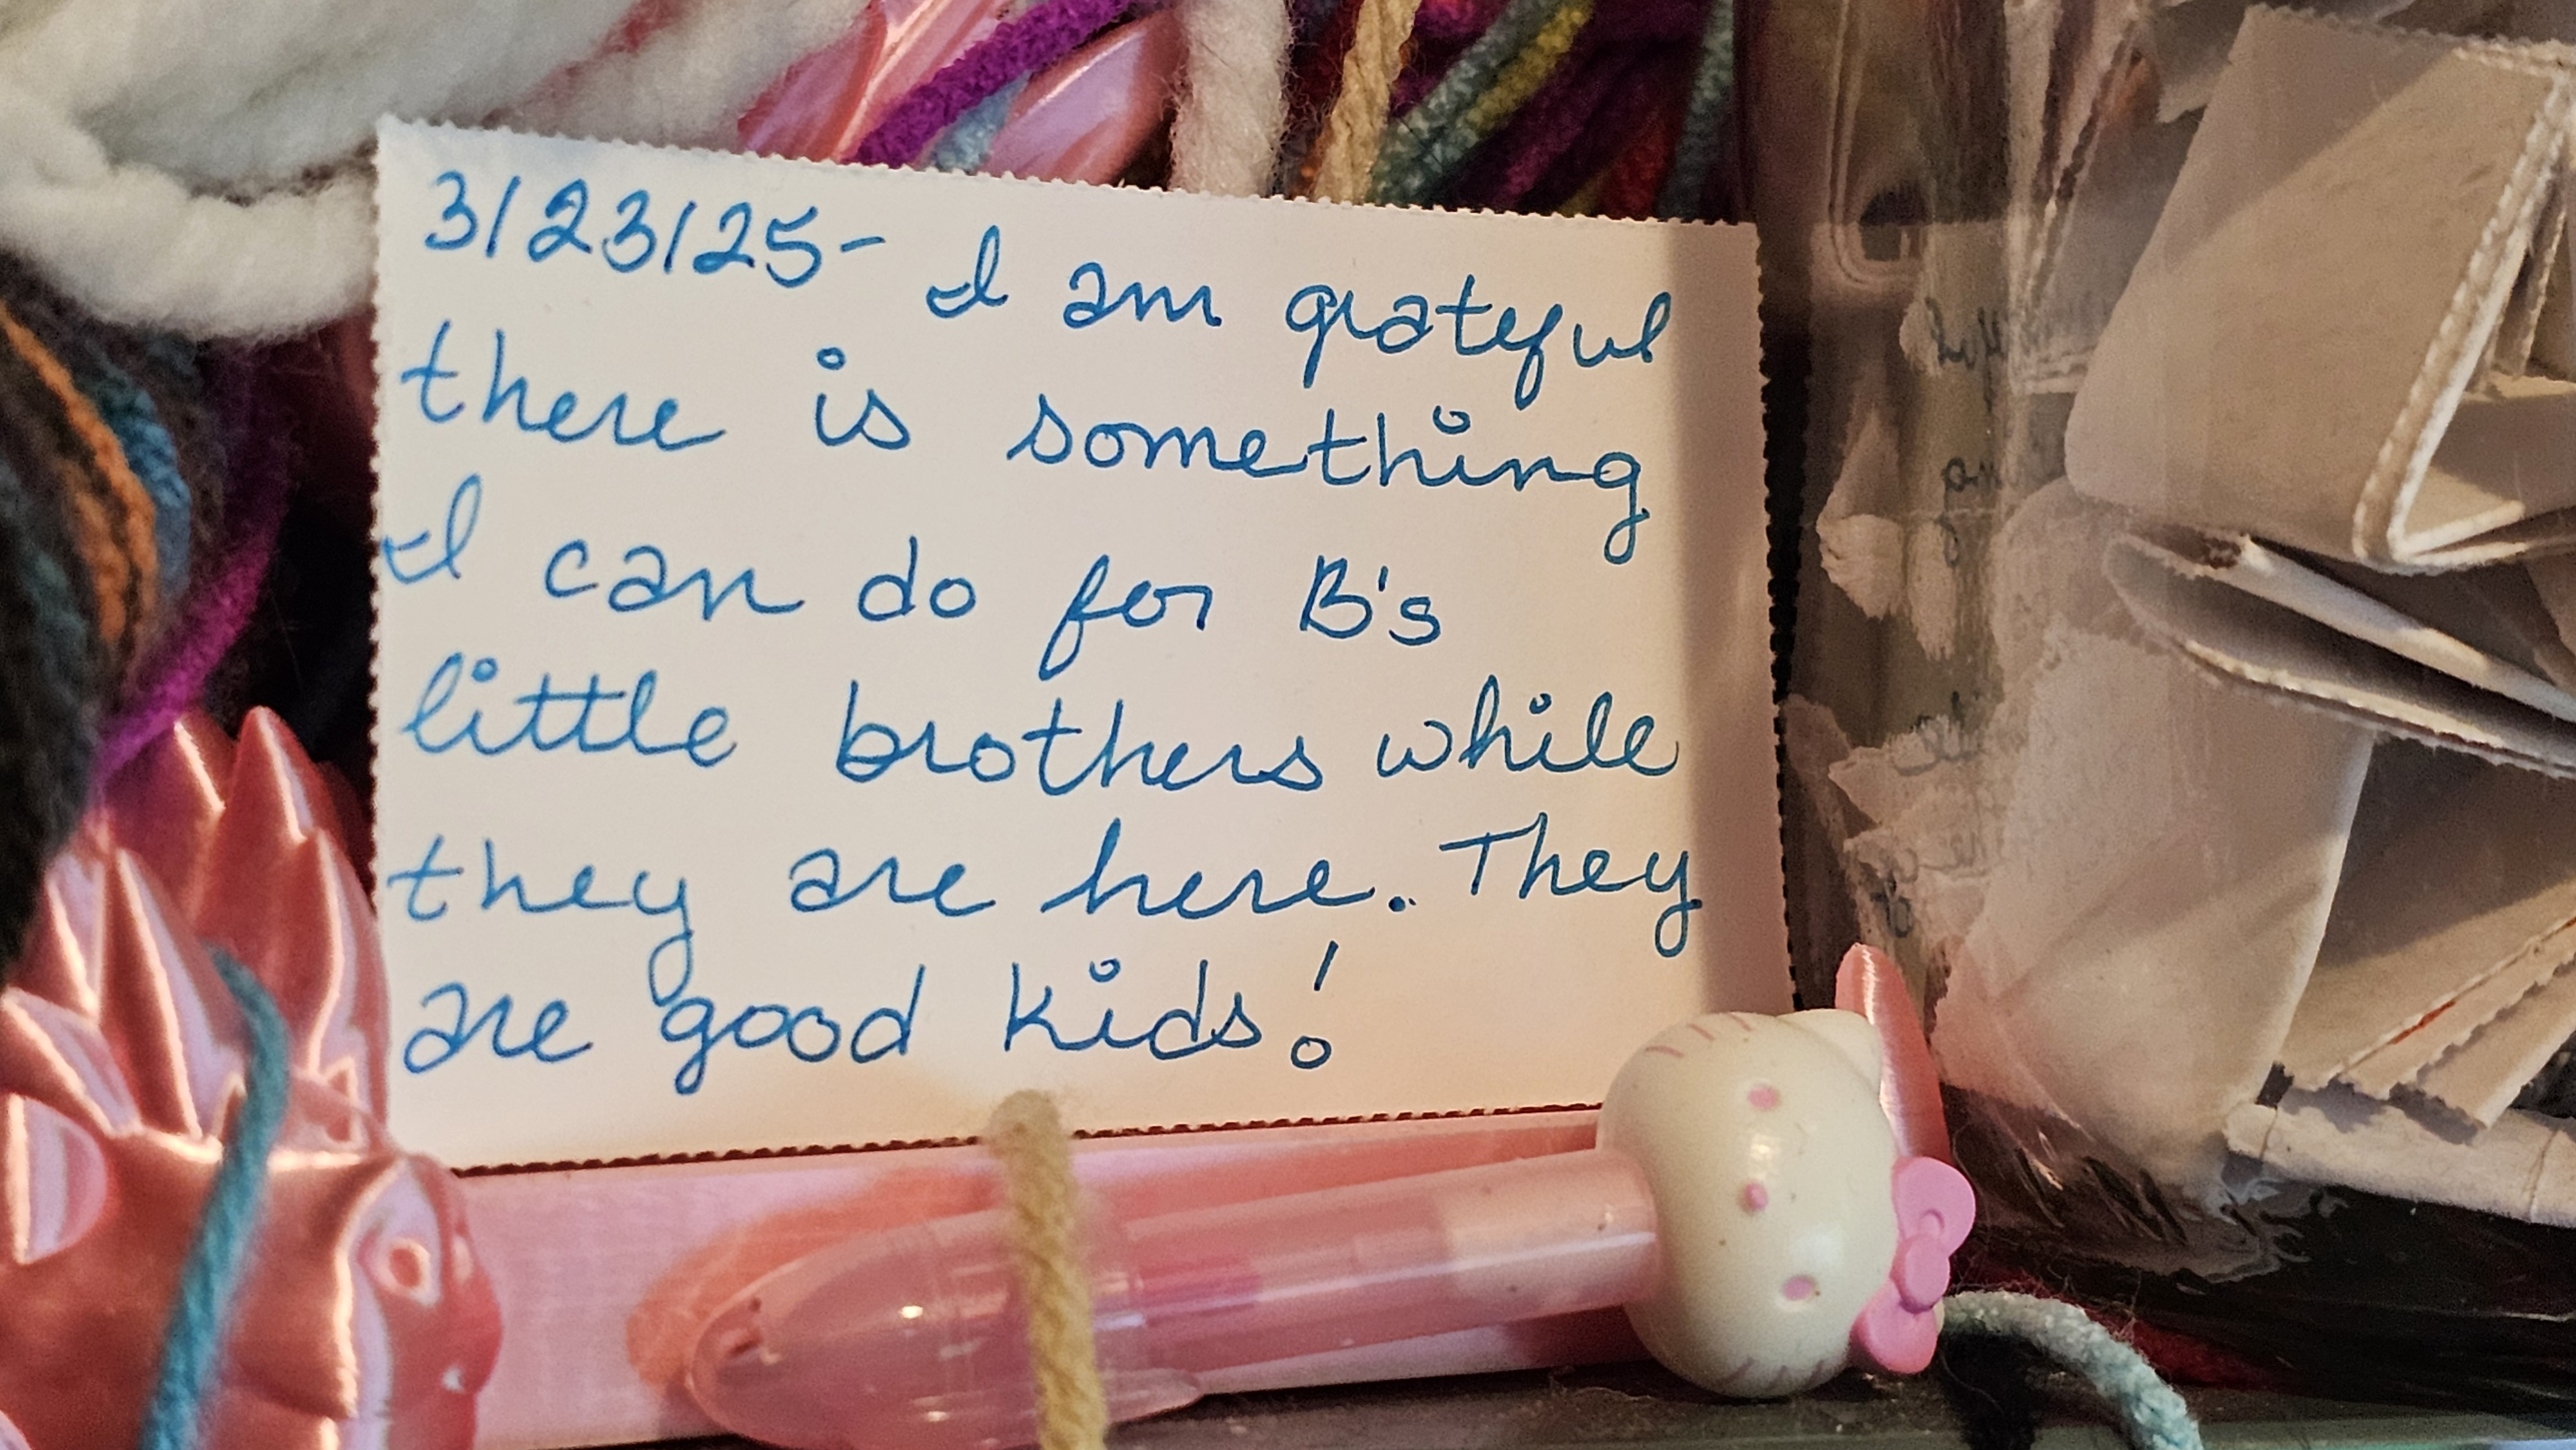 3/23/25- I am grateful
there is something
I can do for B's
little brothers while
they are here. They
are good kids!